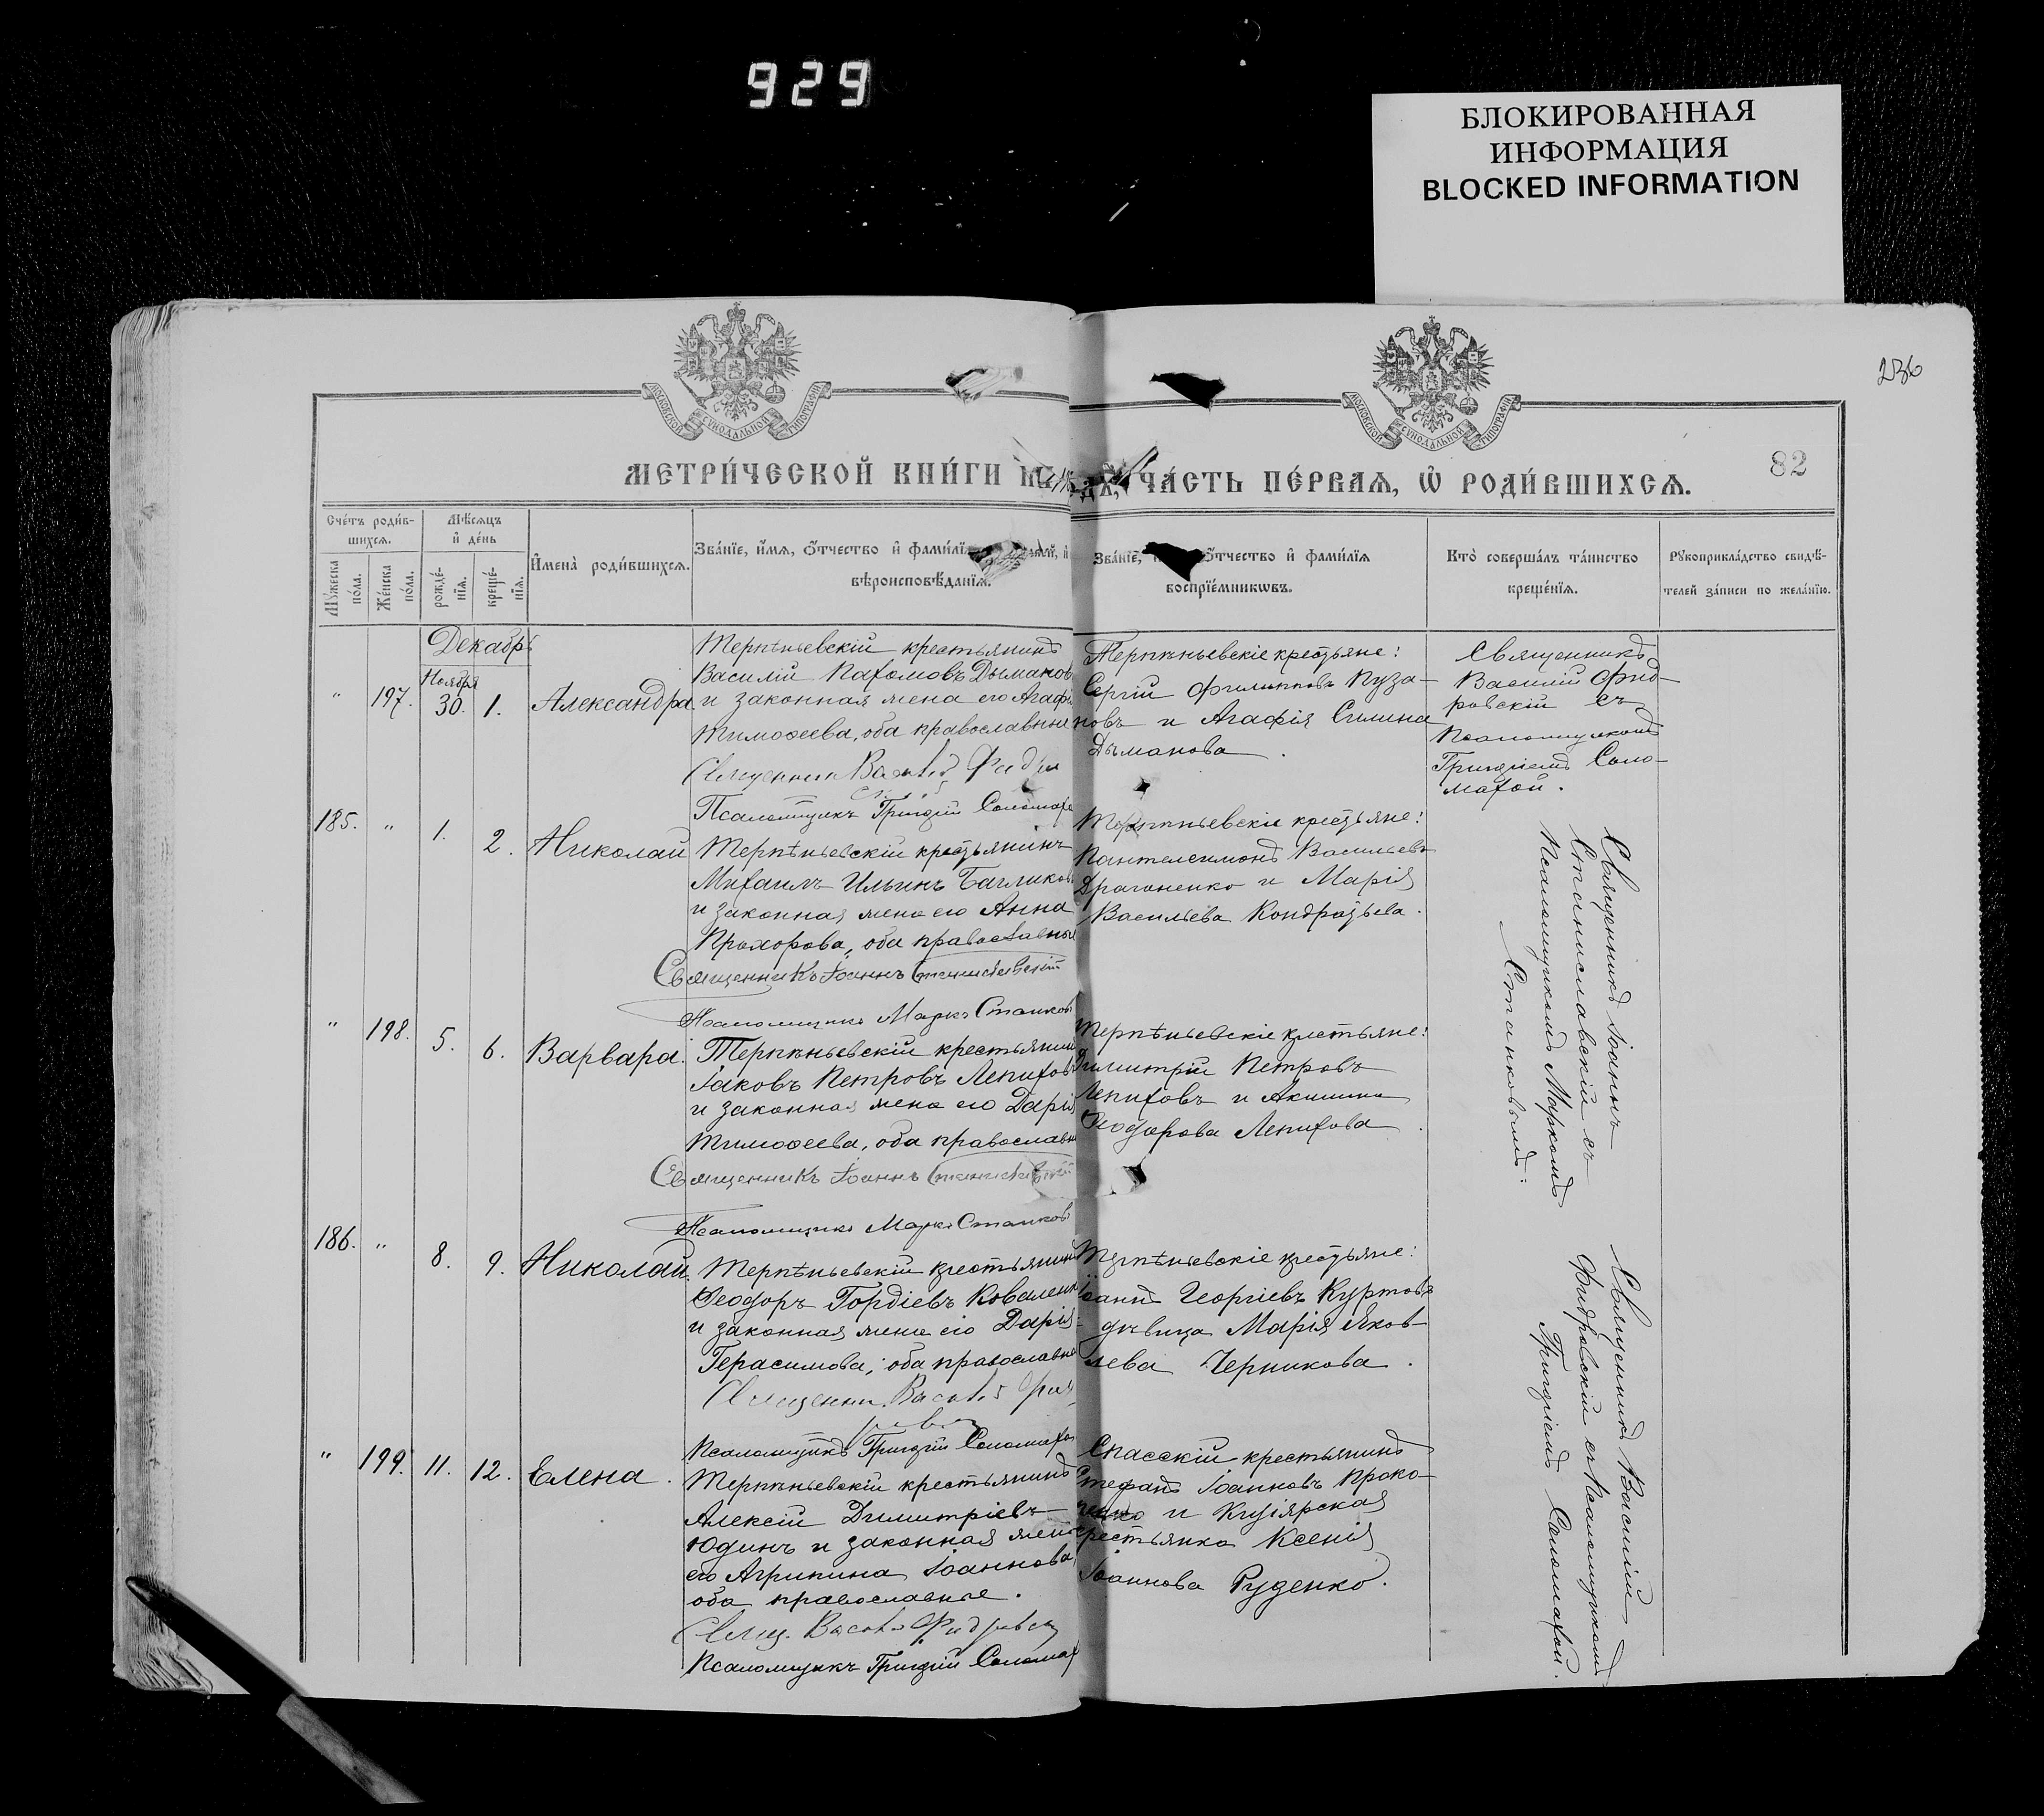 929
БЛОКИРОВАННАЯ
ИНФОРМАЦИЯ
BLOCKED INFORMATION
236
МОСКОВСКОЙ СѴНОДАЛЬНОЙ ТИПОГРАФІИ
МОСКОВСКОЙ СѴНОДАЛЬНОЙ ТИПОГРАФІИ
82
МЕТРИ́ЧЕСКОЙ КНИ́ГИ
ЧА́СТЬ ПЕ́РВАЯ, Ѡ҆ РОДИ́ВШИХСЯ.
Сче́тъ роди́в-
шихся.
Мѣ́сяцъ
и҆ де́нь
Мꙋ́жеска
по́ла.
Же́нска
по́ла.
рожде́-
нїя.
креще́-
нїя.
И҆мена̀ роди́вшихся.
Зва́нїе, и҆́мя, ѻ҆́тчество и҆ фами́лїя
вѣроисповѣ́данїя.
Зва́нїе, ѻ҆́тчество и҆ фами́лїя
воспрїе́мникѡвъ.
Кто̀ соверша́лъ та́инство
креще́нїя.
Рꙋкоприкла́дство свидѣ́-
телей за́писи по жела́нїю.
Декабрь
Ноября
" 197. 30. 1. Александра
Терпѣньевскій крестьянинъ
Василій Пахомовъ Дыманов
и законная жена его Агафія
Тимоѳеева, оба православные
Священник Василій Фидров
Псаломщикъ Григорій Соломаха
Терпѣньевскіе крестьяне:
Сергій Филипповъ Пуза-
новъ и Агафія Силина
Дыманова.
Священникъ
Василій Фид-
ровскій съ
Псаломщикомъ
Григоріемъ Соло-
махой.
185. " 1. 2. Николай
Терпѣньевскій крестьянинъ
Михаилъ Ильинъ Багликовъ
и законная жена его Анна
Прохорова, оба православные
Священникъ Іоаннъ Станиславскій
Псаломщикъ Маркъ Станковъ
Терпѣньевскіе крестьяне:
Пантелеимонъ Васильевъ
Драгоненко и Марія
Васильева Кондратьева.
Священникъ Іоаннъ
Станиславскій съ
Псаломщикомъ Маркомъ
Станковымъ.
" 198. 5. 6. Варвара.
Терпѣньевскій крестьянинъ
Іаковъ Петровъ Лепиховъ
и законная жена его Дарія
Тимоѳеева, оба православн
Священникъ Іоаннъ Станиславскій
Псаломщикъ Маркъ Станковъ
Терпѣньевскіе крестьяне:
Димитрій Петровъ
Лепиховъ и Акилина
Ѳеодорова Лепихова.
186. " 8. 9. Николай.
Терпѣньевскій крестьянинъ
Ѳеодоръ Гордіевъ Коваленко
и законная жена его Дарія
Герасимова; оба православн
Священник Василій Фид
Псаломщикъ Григорій Соломаха
Терпѣньевскіе крестьяне:
Іоаннъ Георгіевъ Куртовъ
дѣвица Марія Яков-
лева Черникова.
Священникъ Василій
Фидровскій съ Псаломщикомъ
Григоріемъ Соломахой.
" 199. 11. 12. Елена.
Терпѣньевскій крестьянинъ
Алексій Димитріевъ
Юдинъ и законная жена
его Агрипина Іоаннова,
оба православные.
Свящ. Василій Фидровск
Псаломщикъ Григорій Соломах
Спасскій крестьянинъ
Стефанъ Іоанновъ Проко-
пенко и Кизіярская
крестьянка Ксенія
Іоаннова Руденко.